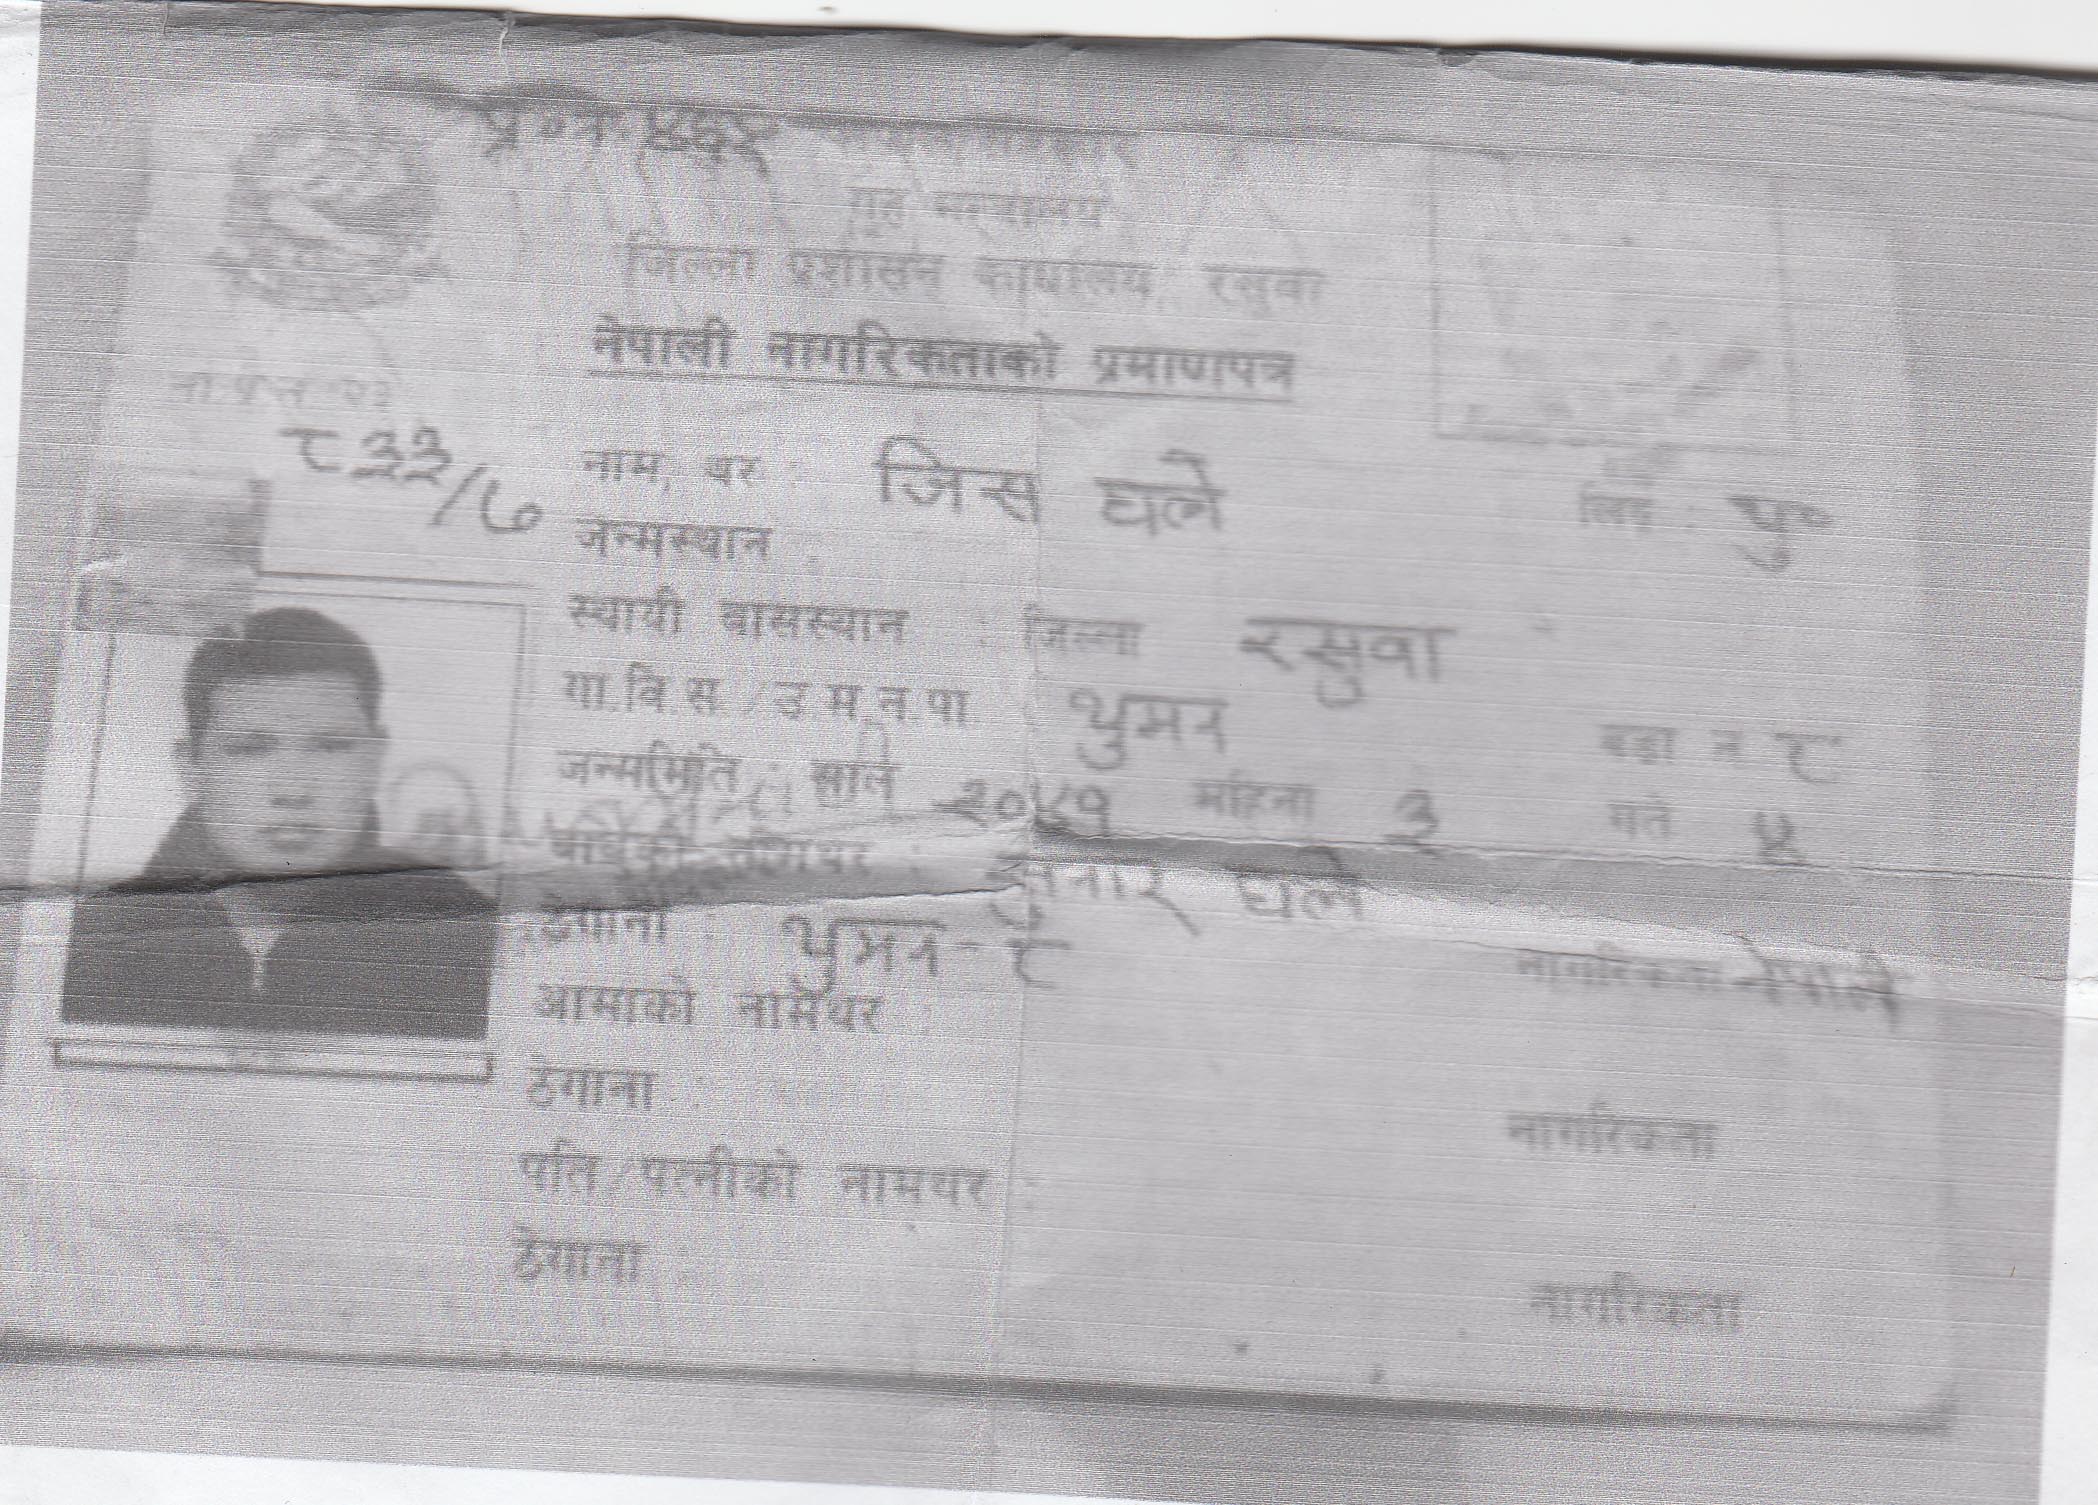 गृह मन्त्रालय
जिल्ला प्रशासन कार्यालय, रसुवा
नेपाली नागरिकताको प्रमाणपत्र
८३३/७
नाम, थर : जित्स घले लिङ्ग : पु॰
जन्मस्थान :
स्थायी बासस्थान : जिल्ला रसुवा
गा.वि.स./उ.म.न.पा. थुमन वडा नं ८
जन्ममिति : साल २०४१ महिना ३ गते ४
घले
ठेगाना : थुमन-८ नागरिकता नेपाली
आमाको नाम थर :
ठेगाना : नागरिकता
पति/पत्नीको नाम थर :
ठेगाना नागरिकता